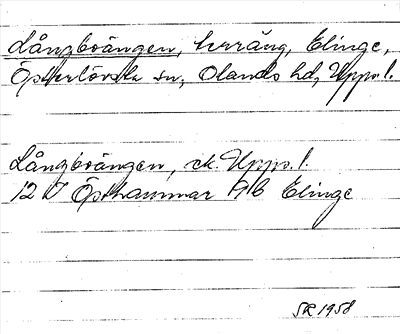 Långboängen, herräng, Elinge,
Österlövsta sn, Olands hd, Uppl.
Långboängen, ek. Uppl.
12 I Östhammar 9b Elinge
SR 1958